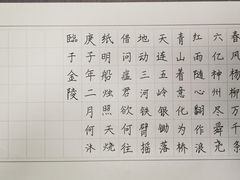 春风杨柳万千条
六亿神州尽舜尧
红雨随心翻作浪
青山着意化为桥
天连五岭银锄落
地动三河铁臂摇
借问瘟君欲何往
纸船明烛照天烧
庚子年二月何沐
临于金陵